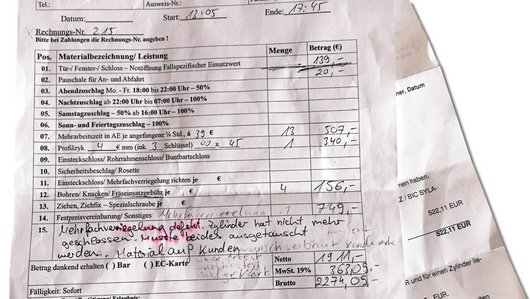 Tel.: Ausweis-Nr.:
Datum: Start: 13:05 Ende: 17:45
Rechnungs-Nr. 215
Bitte bei Zahlungen die Rechnungs-Nr. angeben !
Pos. Materialbezeichnung/ Leistung Menge Betrag (€)
01. Tür-/ Fenster-/ Schloss – Notöffnung Fallspezifischer Einsatzwert 139,-
02. Pauschale für An- und Abfahrt 20,-
03. Abendzuschlag Mo.- Fr. 18:00 bis 22:00 Uhr – 50%
04. Nachtzuschlag ab 22:00 Uhr bis 07:00 Uhr – 100%
05. Samstagzuschlag – 50% ab 16:00 Uhr – 100%
06. Sonn- und Feiertagszuschlag – 100%
07. Mehrarbeitszeit in AE je angefangene ¼ Std., á 39 € 13 507,-
08. Profilzyk. 4 mm (ink. 3 Schlüssel) 40 x 45 1 340,-
09. Einsteckschloss/ Rohrrahmenschloss/ Buntbartschloss
10. Sicherheitsbeschlag/ Rosette
11. Einsteckschloss/ Mehrfachverriegelung richten je €
12. Bohren/ Knacken/ Fräseinsatzgebühr je € 4 156,-
13. Ziehen, Ziehfix – Spezialschraube je €
14. Festpreisvereinbarung/ Sonstiges Mehrfachverriegelung 1 749,-
15. Mehrfachverriegelung defekt. Zylinder hat nicht mehr
geschlossen. Musste beides ausgetauscht
werden. Material auf Kundenwunsch verbaut.
Betrag dankend erhalten ( ) Bar ( ) EC-Karte
Netto 1911,-
MwSt. 19% 363,09,-
Brutto 2274,09,-
Fälligkeit: Sofort
ner, Datum
haben.
/ BIC BYLA-
522,11 EUR
522,11 EUR
R und für einen Zylinder